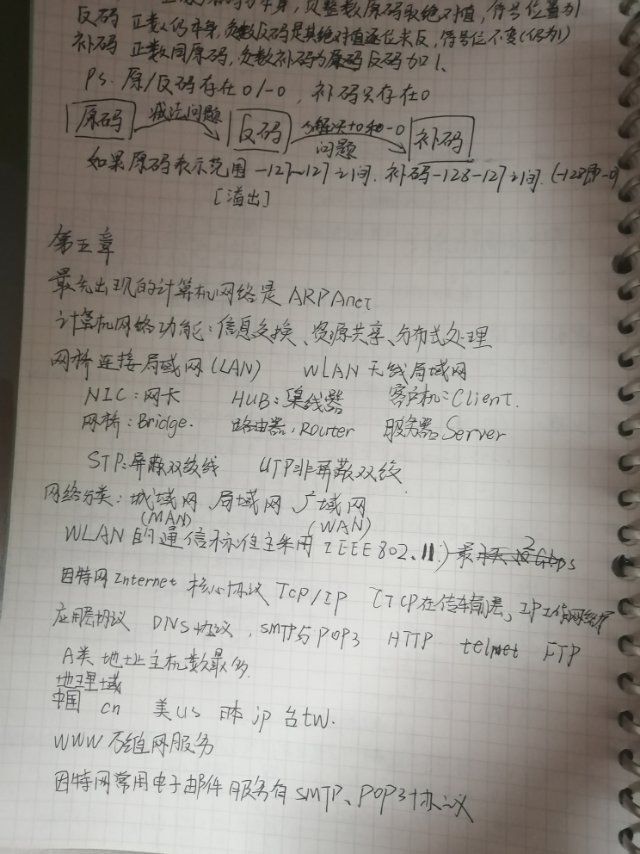 反码 正数仍本身,负数反码是其绝对值逐位求反,符号位不变(仍为1)
补码 正数同原码,负数补码为反码加1、
Ps. 原/反码存在0/-0,补码只存在0
原码 减法问题 反码 解决+0和-0问题 补码
如果原码表示范围-127~127之间.补码-128-127之间.(-128即-0)
[溢出]
第五章
最先出现的计算机网络是ARPAnet
计算机网络功能:信息交换、资源共享、分布式处理
网桥连接局域网(LAN) WLAN无线局域网
NIC:网卡 HUB:集线器 客户机:Client.
网桥:Bridge. 路由器:Router 服务器Server
STP:屏蔽双绞线 UTP非屏蔽双绞
网络分类:城域网、局域网、广域网
(MAN) (WAN)
WLAN的通信标准主采用IEEE802.11)
因特网Internet 核心协议 TCP/IP (TCP在传输层,IP工作网络层
应用层协议 DNS协议,SMTP与POP3 HTTP telnet FTP
A类地址主机数最多.
地理域
中国 cn 美us 日本jp 台tw.
WWW万维网服务
因特网常用电子邮件服务有SMTP、POP3协议